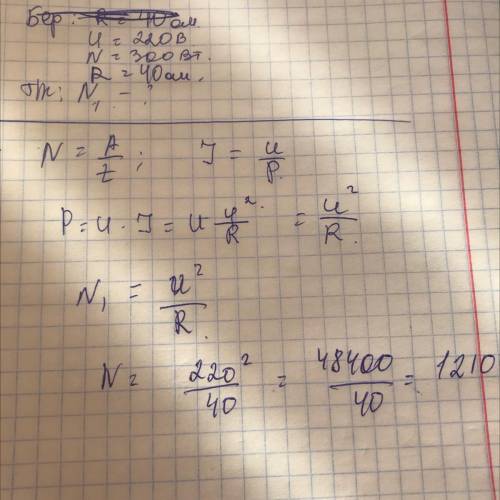 Бер: R = 40 ом.
U = 220 В
N = 300 Вт.
R = 40 ом,
Тж: N₁ - ?
N = A/t ; J = u/P
P = U · J = U u²/R = u²/R.
N₁ = u²/R.
N = 220²/40 = 48400/40 = 1210